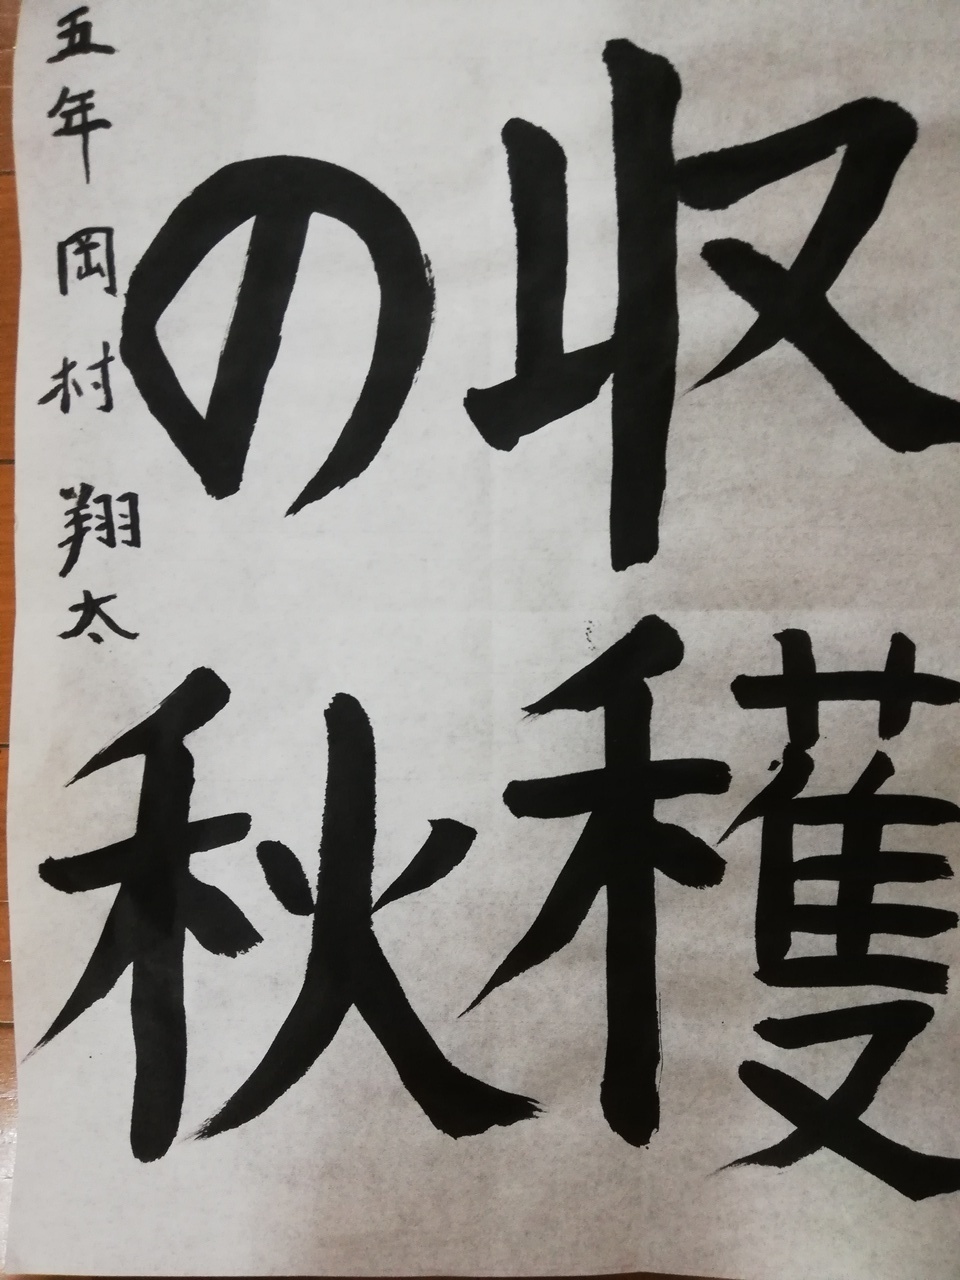 収穫
の秋
五年 岡村 翔太